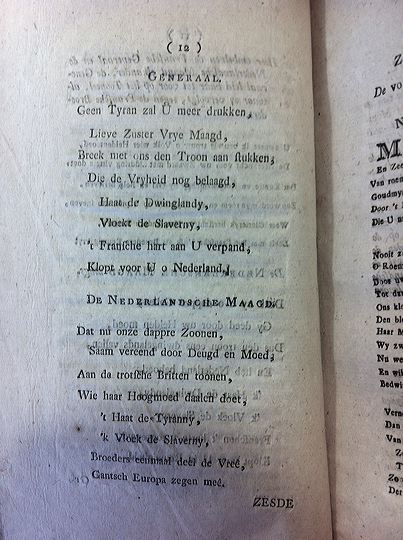 ( 12 )
GENERAAL.
Geen Tyran zal U meer drukken,
Lieve Zuster Vrye Maagd,
Breek met ons den Troon aan stukken,
Die de Vryheid nog belaagd,
Haat de Dwinglandy,
Vloekt de Slaverny,
't Fransche hart aan U verpand,
Klopt voor U o Nederland,
DE NEDERLANDSCHE MAAGD.
Dat nu onze dappre Zoonen,
Saam vereend door Deugd en Moed,
Aan de trotsche Britten toonen,
Wie haar Hoogmoed daalen doet,
't Haat de Tyranny,
'k Vloek de Slaverny,
Broeders eenmaal deel de Vreê,
Gantsch Europa zegen meê.
ZESDE
Z
De vo
N
M
En Zee
Van roem
Goudmyn
Door 't
Die U
Nooit z
O Roem
Door uw
Tot da
Ons kl
Den ble
Haar M
Wy zw
Nu we
En wil
Bedwi
Verne
Dan
Van
Zo
T
Zo
Der